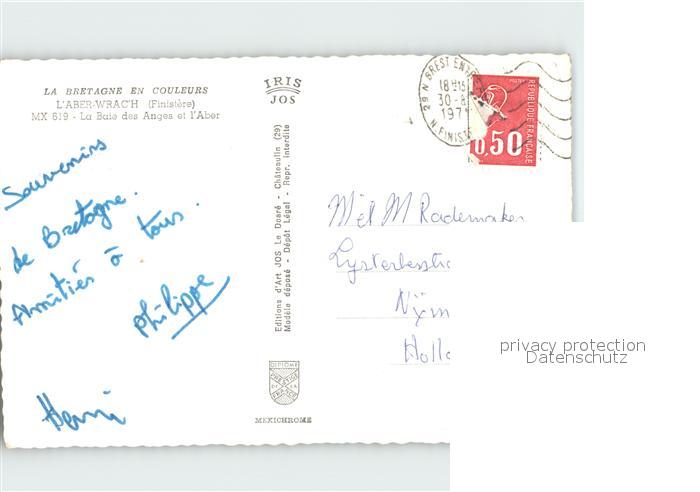 LA BRETAGNE EN COULEURS
L'ABER-WRAC'H (Finistère)
MX 619 - La Baie des Anges et l'Aber
IRIS
JOS
Souvenirs
de Bretagne.
Amitiés à tous.
Philippe
Henri
Editions d'Art JOS Le Doaré - Châteaulin (29)
Modèle déposé - Dépôt Légal - Repr. interdite
DIPLOME
PRESTIGE
DE LA
FRANCE
MEXICHROME
29 N BREST
18H15
30-8
197
N. FINIST
REPUBLIQUE FRANÇAISE
0,50
M Rademaker
Holl
privacy protection
Datenschutz